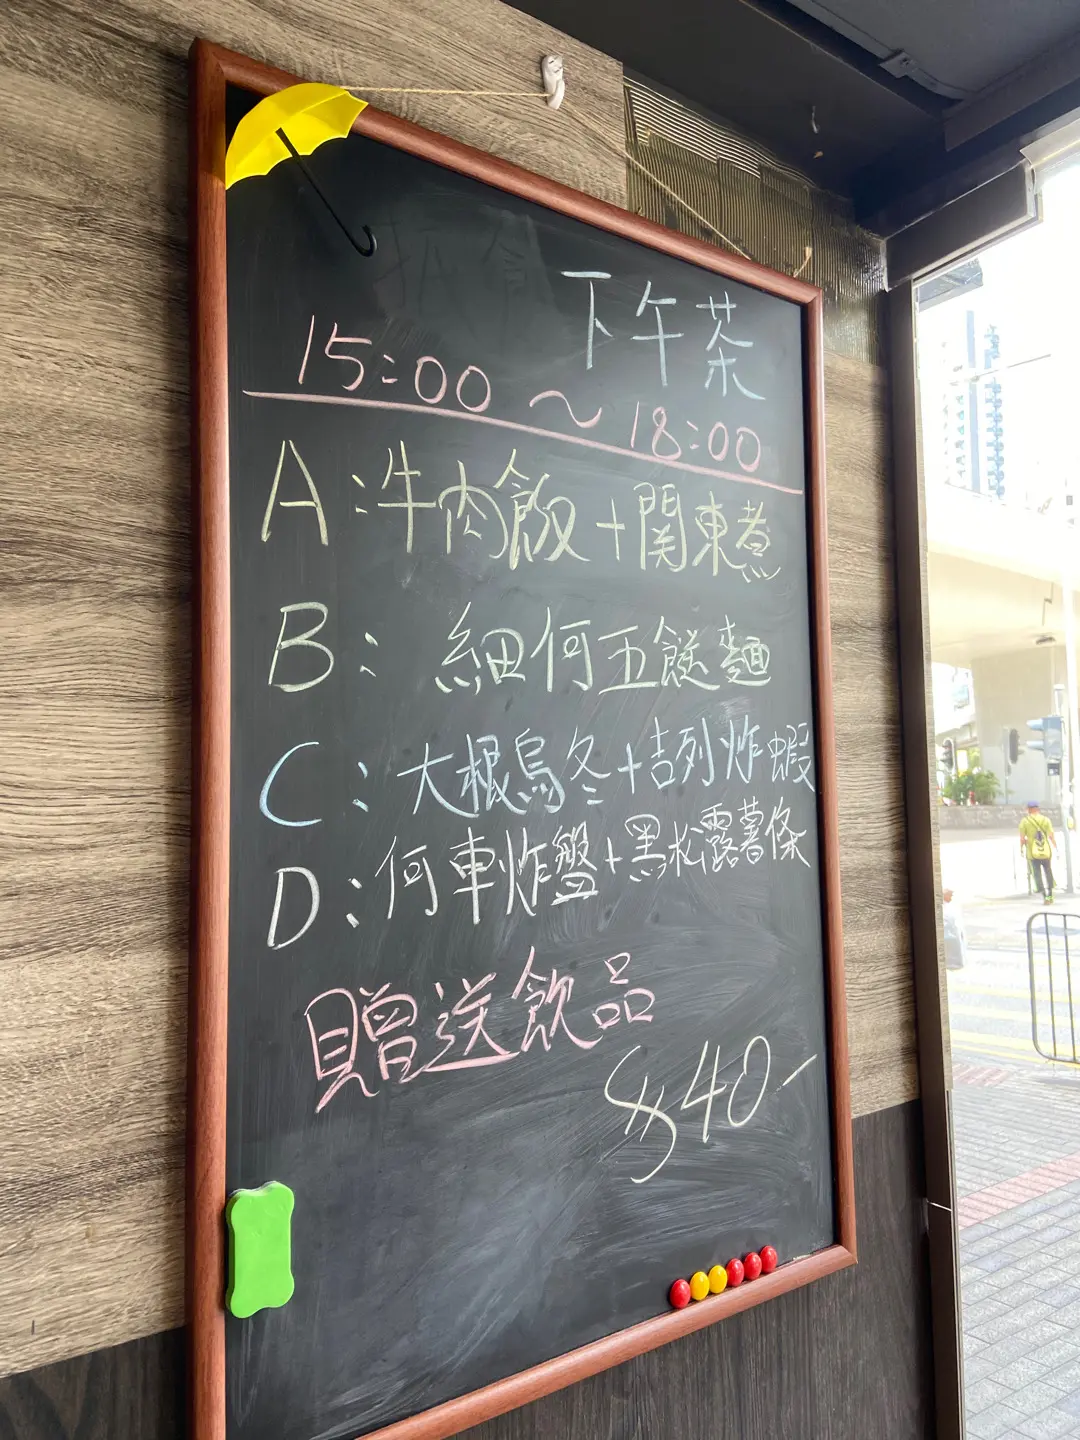 下午茶
15:00 ~ 18:00
A:牛肉飯+関東煮
B: 細何五餸麵
C:大根烏冬+吉列炸蝦
D:何車炸盤+黑松露薯條
贈送飲品
$40-